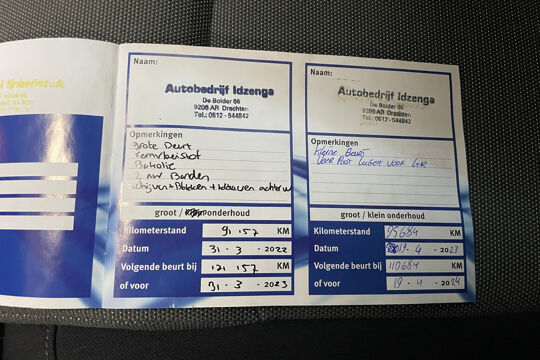 Naam:
Autobedrijf Idzenga
De Bolder 66
9206 AR Drachten
Tel.: 0512 - 544842
Opmerkingen
Grote Beurt
Remvloeistof
2 nw Banden
groot / onderhoud
Kilometerstand 91 157 KM
Datum 31 - 3 - 2022
Volgende beurt bij 121 157 KM
of voor 31 - 3 - 2023
Naam:
Autobedrijf Idzenga
De Bolder 66
9206 AR Drachten
Tel.: 0512 - 544842
Opmerkingen
Kleine Beurt
Veer Poot Lager voor L+R
groot / klein onderhoud
Kilometerstand 95684 KM
Datum 19 - 4 - 2023
Volgende beurt bij 110684 KM
of voor 19 - 4 - 2024